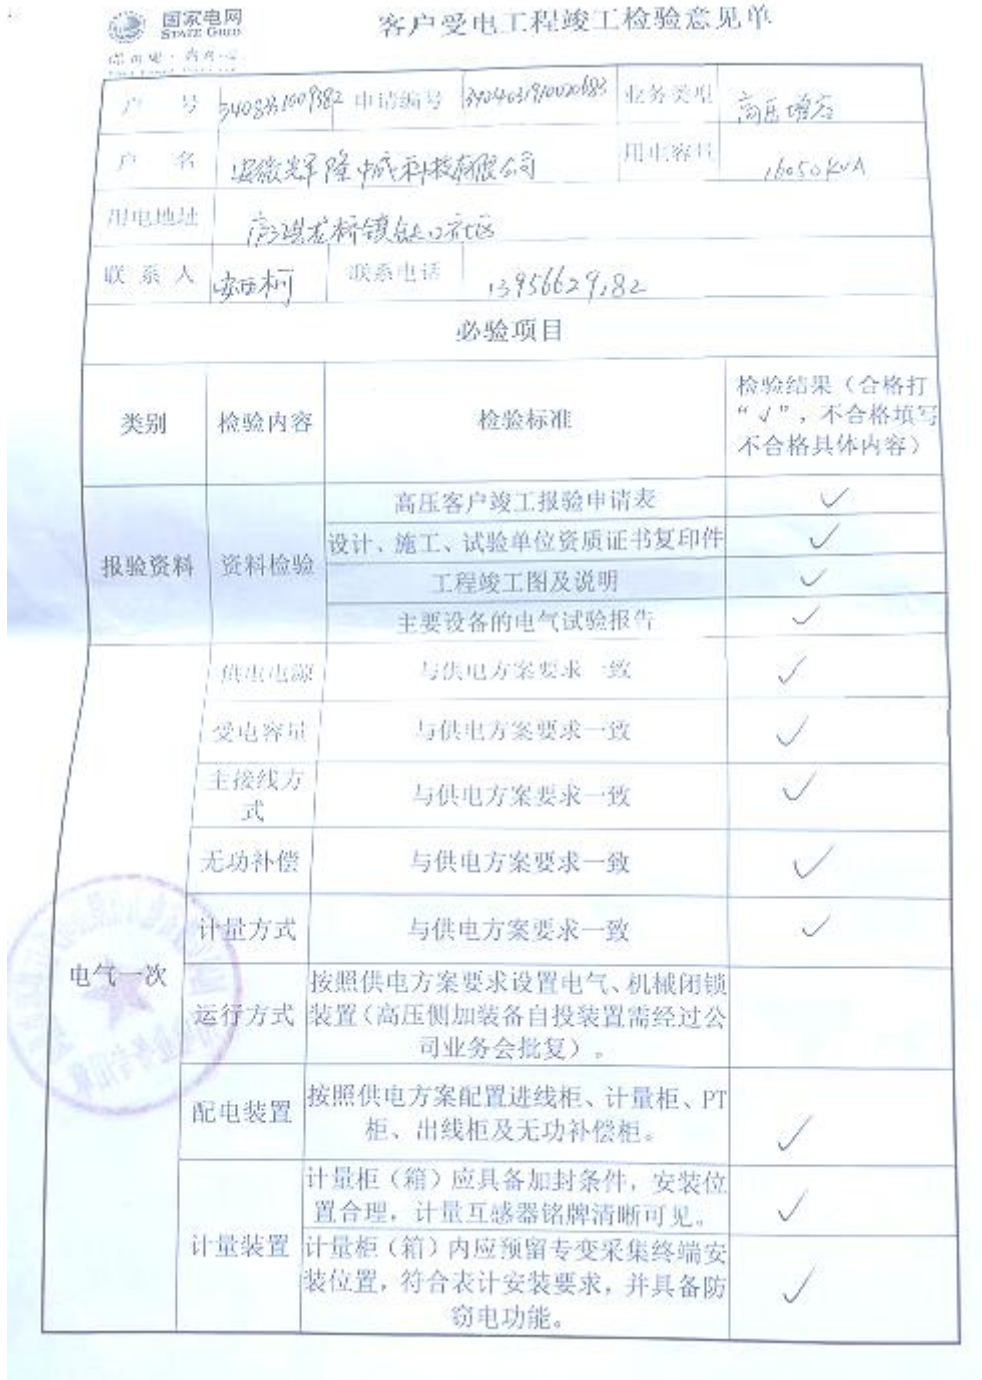 国家电网
STATE GRID
客户受电工程竣工检验意见单
户 号 申请编号 业务类型 高压增容
户 名 安徽辉隆中成科技有限公司 用电容量 16050KVA
用电地址
联系人 联系电话 13956629182
必验项目
类别 检验内容 检验标准 检验结果（合格打
“√”，不合格填写
不合格具体内容）
报验资料 资料检验 高压客户竣工报验申请表 ✓
设计、施工、试验单位资质证书复印件 ✓
工程竣工图及说明 ✓
主要设备的电气试验报告 ✓
电气一次 供电电源 与供电方案要求一致 ✓
受电容量 与供电方案要求一致 ✓
主接线方
式 与供电方案要求一致 ✓
无功补偿 与供电方案要求一致 ✓
计量方式 与供电方案要求一致 ✓
运行方式 按照供电方案要求设置电气、机械闭锁
装置（高压侧加装备自投装置需经过公
司业务会批复）。
配电装置 按照供电方案配置进线柜、计量柜、PT
柜、出线柜及无功补偿柜。 ✓
计量装置 计量柜（箱）应具备加封条件，安装位
置合理，计量互感器铭牌清晰可见。 ✓
计量柜（箱）内应预留专变采集终端安
装位置，符合表计安装要求，并具备防
窃电功能。 ✓